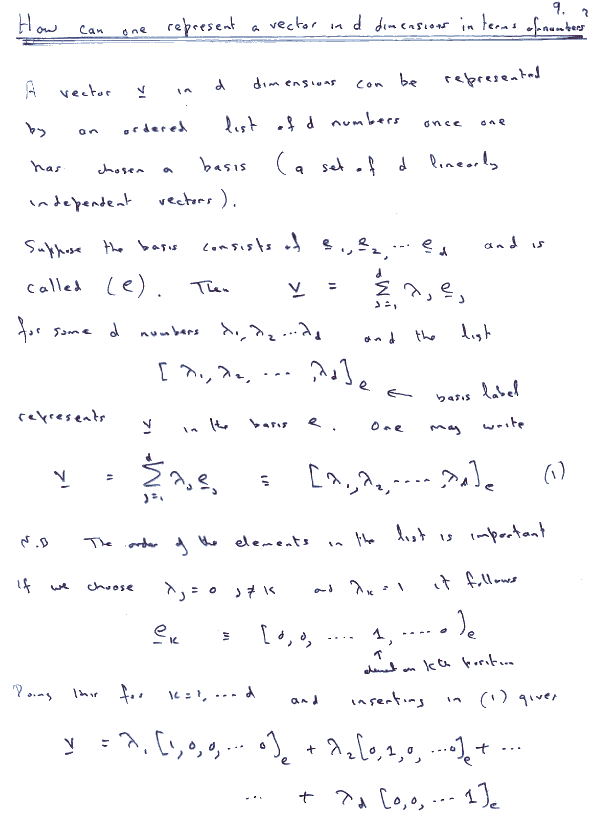 9. ?
How can one represent a vector in d dimensions in terms of numbers
A vector v in d dimensions can be represented
by an ordered list of d numbers once one
has chosen a basis (a set of d linearly
independent vectors).
Suppose the basis consists of e₁, e₂, ... e_d and is
called (e). Then v = Σ_{j=1}^{d} λ_j e_j
for some d numbers λ₁, λ₂ ... λ_d and the list
[λ₁, λ₂, ... , λ_d]_e ← basis label
represents v in the basis e. One may write
v = Σ_{j=1}^{d} λ_j e_j ≡ [λ₁, λ₂, ...., λ_d]_e (1)
N.B The order of the elements in the list is important
If we choose λ_j = 0 j ≠ k and λ_k = 1 it follows
e_k ≡ [0, 0, .... 1, .... 0]_e
↑
element in kth position
Doing this for k=1, ... d and inserting in (1) gives
v = λ₁ [1, 0, 0, ... 0]_e + λ₂ [0, 1, 0, ... 0]_e + ...
... + λ_d [0, 0, ... 1]_e